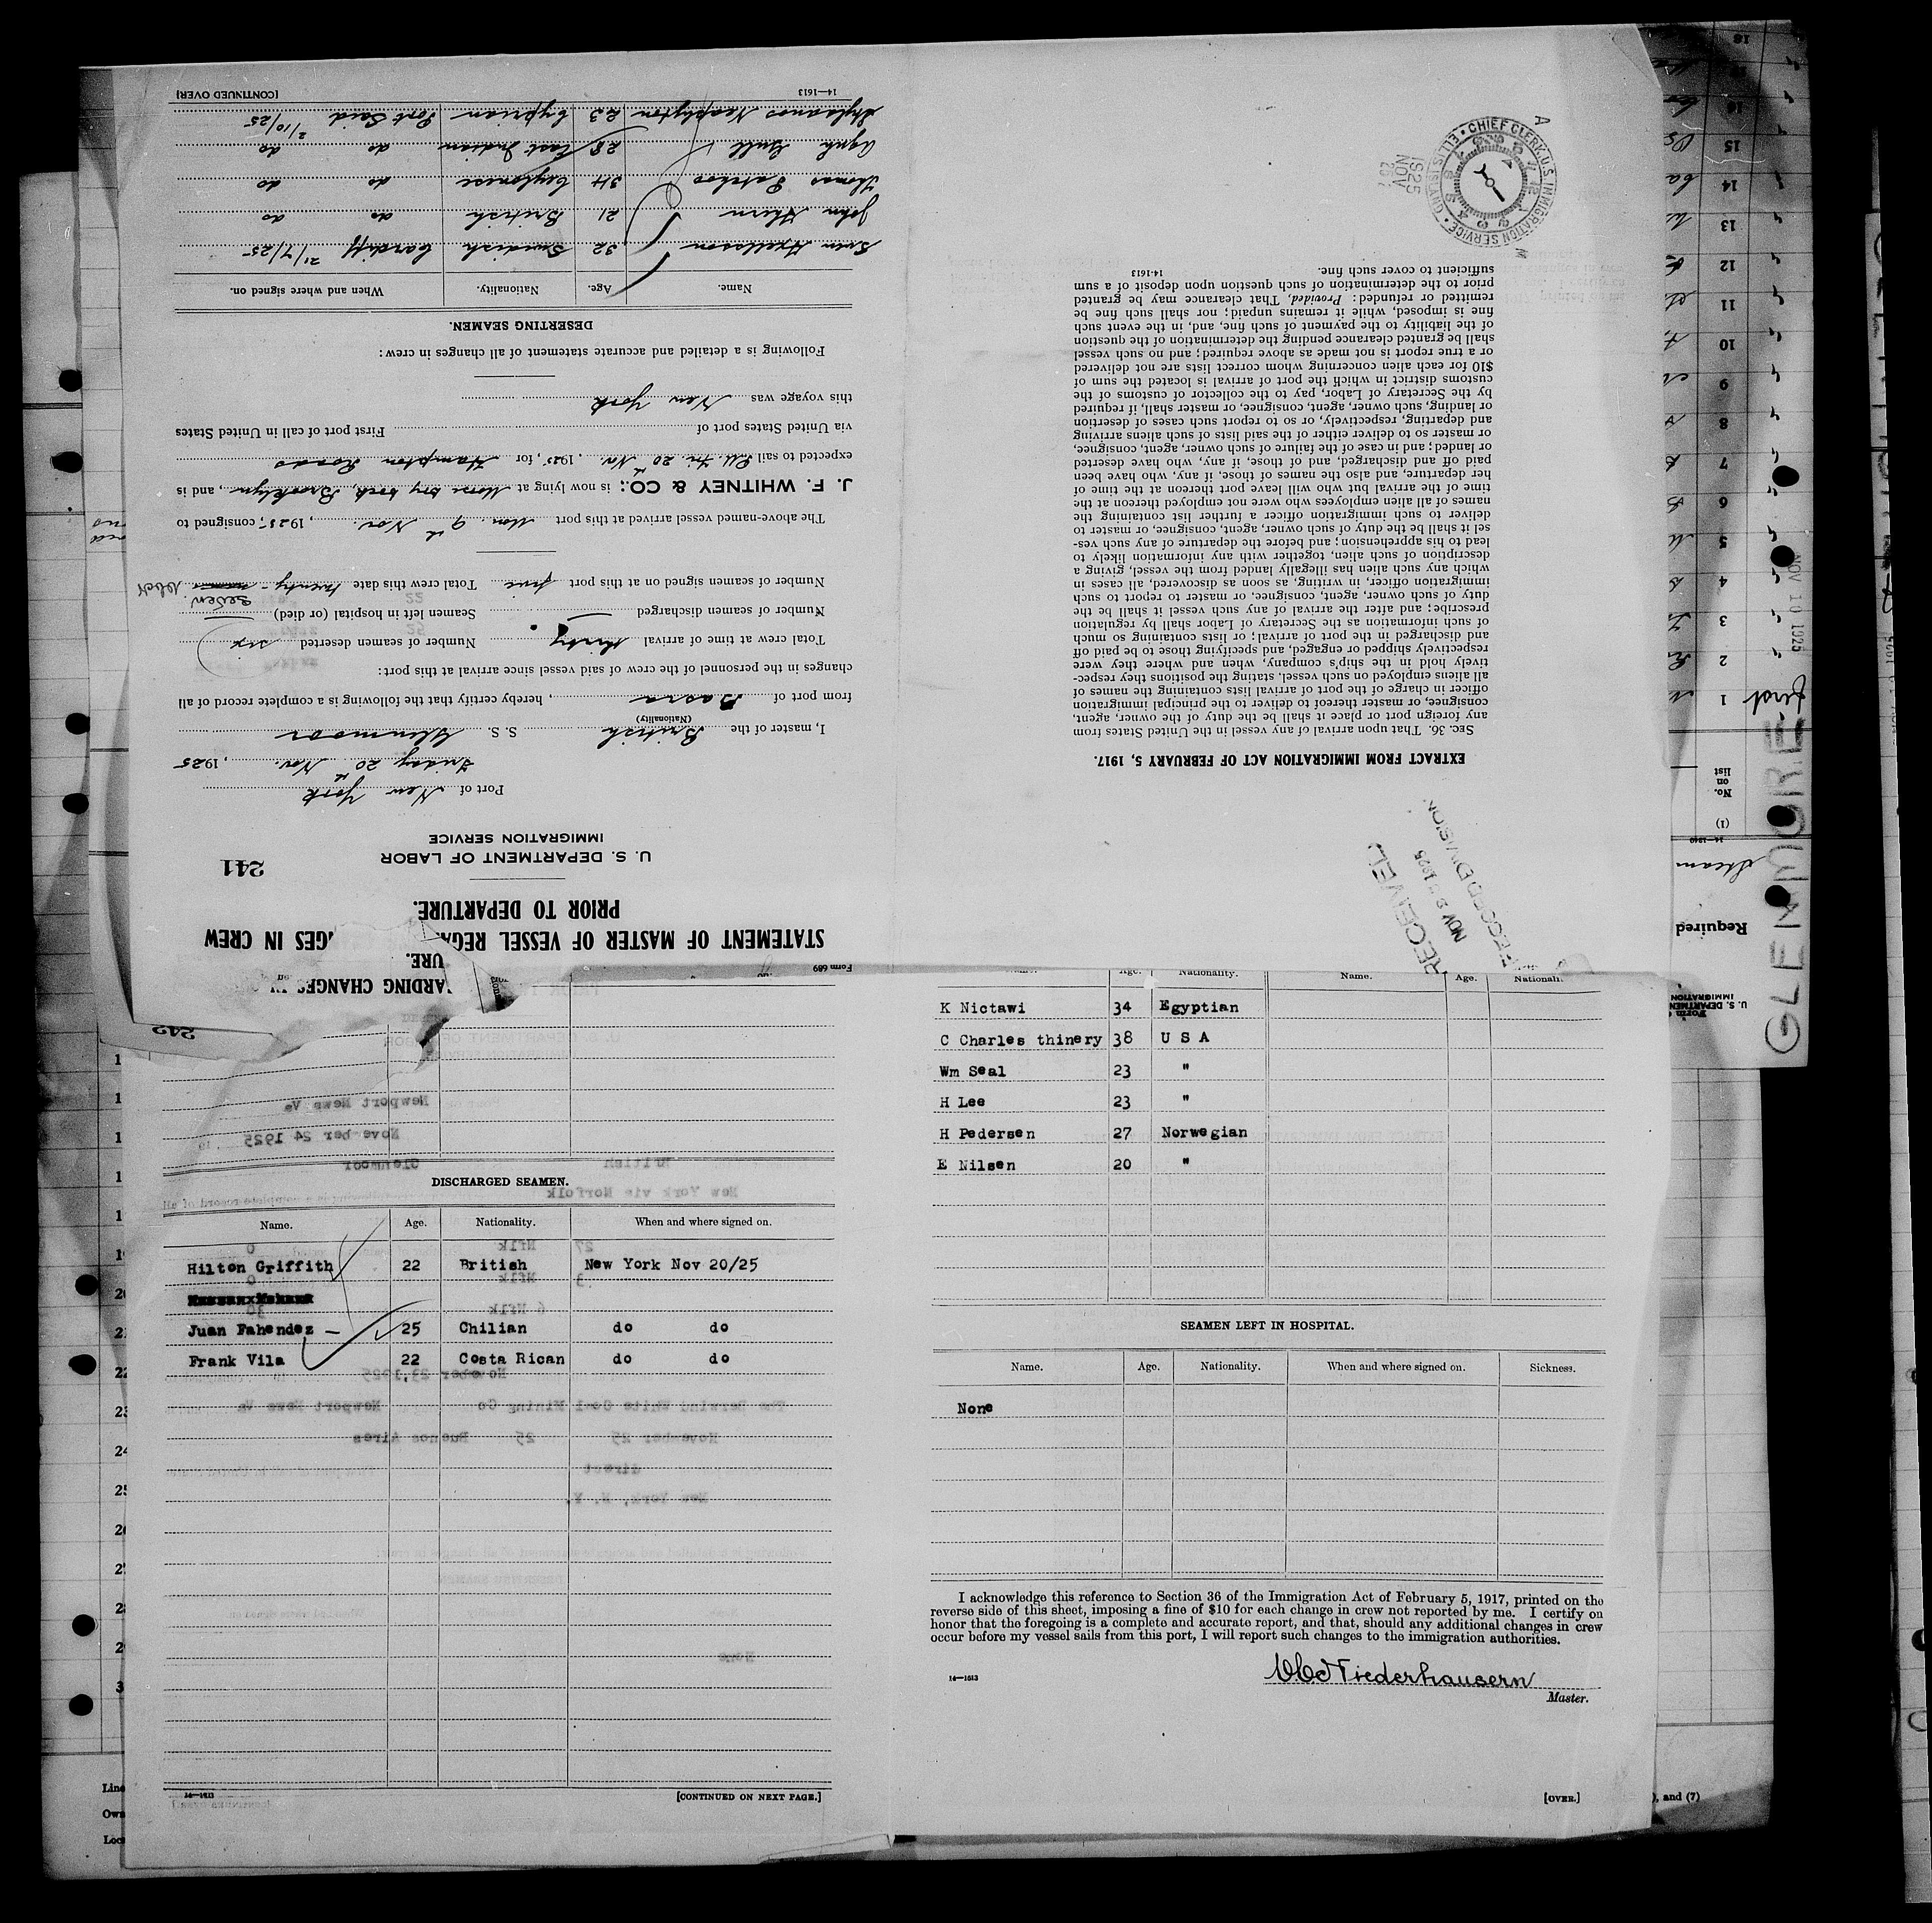 Form 689
STATEMENT OF MASTER OF VESSEL REGA GES IN CREW
PRIOR TO DEPARTURE.
U. S. DEPARTMENT OF LABOR
IMMIGRATION SERVICE
241
Port of New York
Friday 20th Nov. , 1925
I, master of the British S. S. Glenmoor
(Nationality)
from port of Basra , hereby certify that the following is a complete record of all
changes in the personnel of the crew of said vessel since arrival at this port:
Total crew at time of arrival thirty Number of seamen deserted six
Number of seamen discharged Seamen left in hospital (or died)
Number of seamen signed on at this port five Total crew this date twenty- seven
The above-named vessel arrived at this port Mon. 9th Nov. , 1925, consigned to
J. F. WHITNEY & CO.: is now lying at Morse Dry Dock, Brooklyn , and is
expected to sail P.M. Fri. 20th Nov. , 1925, for Hampton Roads
via United States port of First port of call in United States
this voyage was New York
Following is a detailed and accurate statement of all changes in crew:
DESERTING SEAMEN.
Name. Age. Nationality. When and where signed on.
Sven Axelsson 32 Swedish Cardiff 21/7/25
John Ahern 21 British do do
Thomas 34 Ceylonese do do
Gull 28 East Indian do do
Neophyton 23 Cyprian Port Said 2/10/25
14—1613
[CONTINUED OVER]
RECEIVED
NOV 1925
RECORD DIVISION
EXTRACT FROM IMMIGRATION ACT OF FEBRUARY 5, 1917.
SEC. 36. That upon arrival of any vessel in the United States from
any foreign port or place it shall be the duty of the owner, agent,
consignee, or master thereof to deliver to the principal immigration
officer in charge of the port of arrival lists containing the names of
all aliens employed on such vessel, stating the positions they respec-
tively hold in the ship's company, when and where they were
respectively shipped or engaged, and specifying those to be paid off
and discharged in the port of arrival; or lists containing so much
of such information as the Secretary of Labor shall by regulation
prescribe; and after the arrival of any such vessel it shall be the
duty of such owner, agent, consignee, or master to report to such
immigration officer, in writing, as soon as discovered, all cases in
which any such alien has illegally landed from the vessel, giving a
description of such alien, together with any information likely to
lead to his apprehension; and before the departure of any such ves-
sel it shall be the duty of such owner, agent, consignee, or master to
deliver to such immigration officer a further list containing the
names of all alien employees who were not employed thereon at the
time of the arrival but who will leave port thereon at the time of
her departure, and also the names of those, if any, who have been
paid off and discharged, and of those, if any, who have deserted
or landed; and in case of the failure of such owner, agent, consignee,
or master so to deliver either of the said lists of such aliens arriving
and departing, respectively, or so to report such cases of desertion
or landing, such owner, agent, consignee, or master shall, if required
by the Secretary of Labor, pay to the collector of customs of the
customs district in which the port of arrival is located the sum of
$10 for each alien concerning whom correct lists are not delivered
or a true report is not made as above required; and no such vessel
shall be granted clearance pending the determination of the question
of the liability to the payment of such fine, and, in the event such
fine is imposed, while it remains unpaid; nor shall such fine be
remitted or refunded: Provided, That clearance may be granted
prior to the determination of such question upon deposit of a sum
sufficient to cover such fine.
14-1613
CHIEF CLERK, U.S. IMMIGRATION SERVICE • ELLIS ISLAND
NOV
1925
ARDING CHANGES
URE.
242
DISCHARGED SEAMEN.
Name. Age. Nationality. When and where signed on.
Hilton Griffith 22 British New York Nov 20/25
Juan Fahendez — 25 Chilian do do
Frank Vila 22 Costa Rican do do
14—1613
[CONTINUED ON NEXT PAGE.]
Age. Nationality. Name. Age. Nationali.
K Nictawi 34 Egyptian
C Charles thinery 38 U S A
Wm Seal 23 "
H Lee 23 "
H Pedersen 27 Norwegian
E Nilsen 20 "
SEAMEN LEFT IN HOSPITAL.
Name. Age. Nationality. When and where signed on. Sickness.
None
I acknowledge this reference to Section 36 of the Immigration Act of February 5, 1917, printed on the
reverse side of this sheet, imposing a fine of $10 for each change in crew not reported by me. I certify on
honor that the foregoing is a complete and accurate report, and that, should any additional changes in crew
occur before my vessel sails from this port, I will report such changes to the immigration authorities.
Niederhausern
Master.
14—1613
[OVER.]
, and (7)
GLENMORE
NOV 10 1925
Required
Steam
(1)
No.
on
list
first
1
2
3
4
5
6
7
8
9
10
11
12
13
14
15
16
Line
Own
Loc